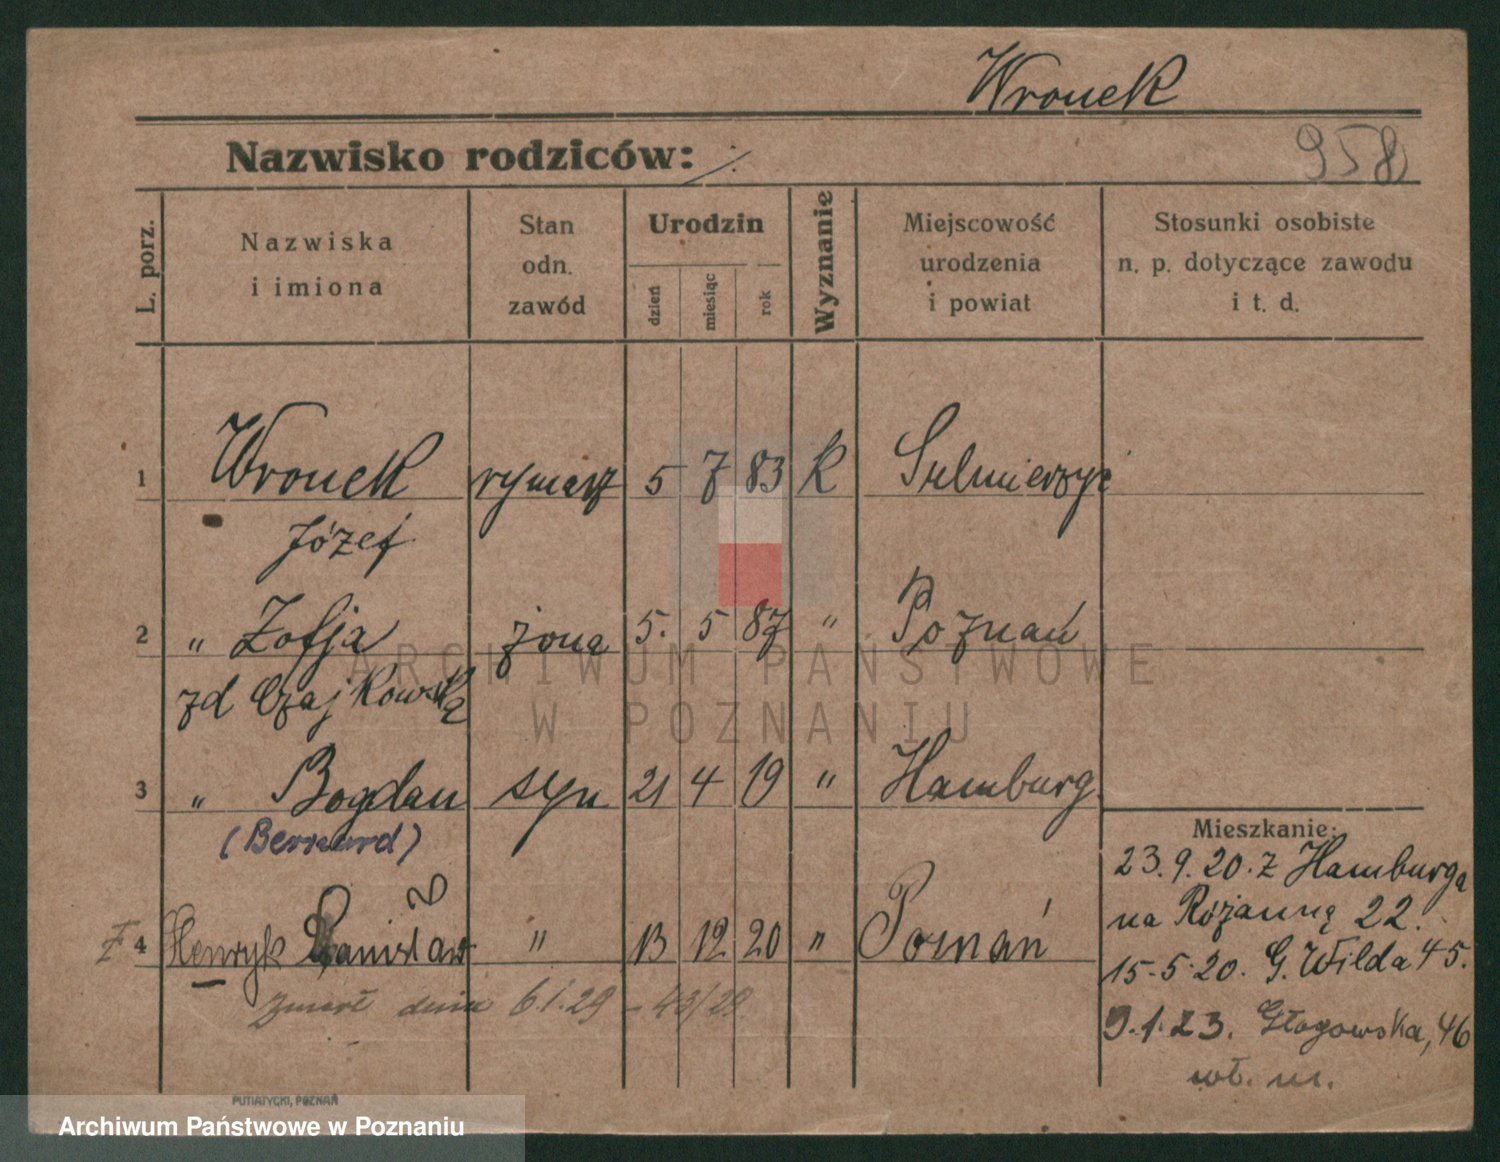 Wronek
Nazwisko rodziców: ·/.
958
L. porz.
Nazwiska
i imiona
Stan
odn.
zawód
Urodzin
dzień
miesiąc
rok
Wyznanie
Miejscowość
urodzenia
i powiat
Stosunki osobiste
n. p. dotyczące zawodu
i t. d.
1 Wronek rymarz 5 7 83 k Sulmierzyc
Józef
2 " Zofja żona 5. 5 87 " Poznań
zd Czajkowska
3 " Bogdan syn 21 4 19 " Hamburg
(Bernard)
4 Henryk Stanisław " 13 12 20 " Poznań
zmarł dnia 6.1.29 - 43/28
Mieszkanie:
23.9.20. z Hamburga
na Różanną 22.
15.5.20. G. Wilda 45.
9.1.23. Głogowska, 46
wł. m.
PUTIATYCKI, POZNAŃ
ARCHIWUM PAŃSTWOWE
W POZNANIU
Archiwum Państwowe w Poznaniu